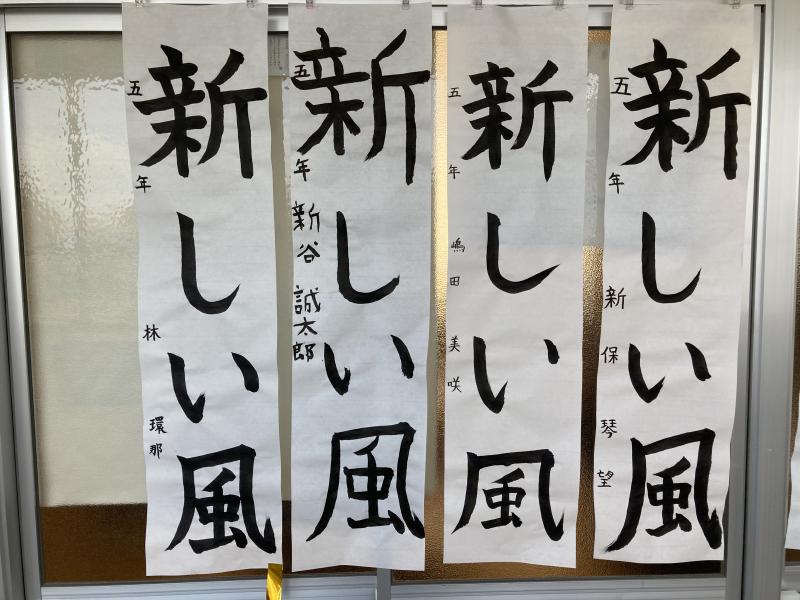 新しい風
五年 新保琴望
新しい風
五年 嶋田美咲
新しい風
五年 新谷誠太郎
新しい風
五年 林環那